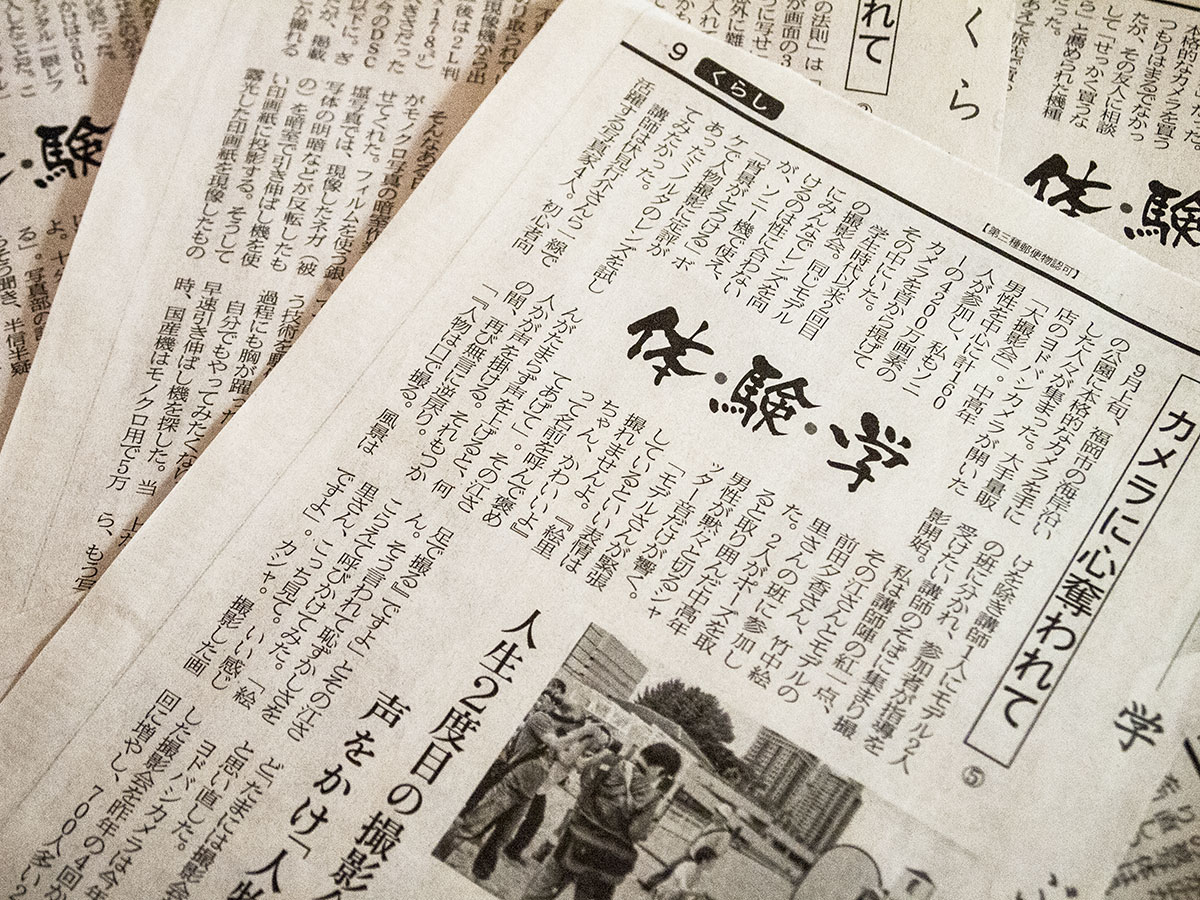 9
くらし
【第三種郵便物認可】
カメラに心奪われて
⑤
体・験・学
9月上旬、福岡市の海岸沿い
の公園に本格的なカメラを手に
した人々が集まった。大手量販
店のヨドバシカメラが開いた
「大撮影会」。中高年
男性を中心に計160
人が参加し、私もソニ
ーの4200万画素の
カメラを首から提げて
その中にいた。
学生時代以来2回目
の撮影会。同じモデル
にみんなでレンズを向
けるのは性に合わない
が、ソニー機で使え、
「背景がとろける」ボ
ケで人物撮影に定評が
あったミノルタのレンズを試し
てみたかった。
講師は伏見行介さんら一線で
活躍する写真家4人。初心者向
けを除き講師1人にモデル2人
の班に分かれ、参加者が指導を
受けたい講師のそばに集まり撮
影開始。
私は講師陣の紅一点、
その江さんとモデルの
前田夕香さん、竹中絵
里さんの班に参加し
た。2人がポーズを取
ると取り囲んだ中高年
男性が黙々と切るシャ
ッター音だけが響く。
「モデルさんが緊張
しているといい表情は
撮れませんよ。『絵里
ちゃん、かわいいよ』
って名前を呼んで褒め
てあげて」。その江さ
んがたまらず声を上げると、何
人かが声を掛ける。それもつか
の間、再び無言に逆戻り。
「『人物は口で撮る。風景は
足で撮る』ですよ」とその江さ
ん。そう言われて恥ずかしさを
こらえて呼びかけてみた。「絵
里さん、こっち見て。いい感じ
ですよ」。カシャ。撮影した画
人生2度目の撮影
声をかけ「人物
どたまには撮影会
と思い直した。
ヨドバシカメラは今年
した撮影会を昨年の4回か
回に増やし、700人多い2
そんなある日
がモノクロ写真の暗室作
せてくれた。フィルムを使う銀
塩写真では、現像したネガ（被
写体の明暗などが反転したも
の）を暗室で引き伸ばし機を使
い印画紙に投影する。そうして
露光した印画紙を現像したもの
う技術を
過程にも胸が躍っ
自分でもやってみたくな
早速引き伸ばし機を探した。当
時、国産機はモノクロ用で5万
ら、もう
体・験
くら
れて
本格的なカメラを買う
つもりはまるでなかっ
たが、その友人に相談
して「せっかく買うな
ら」と薦められた機種
体・験
学